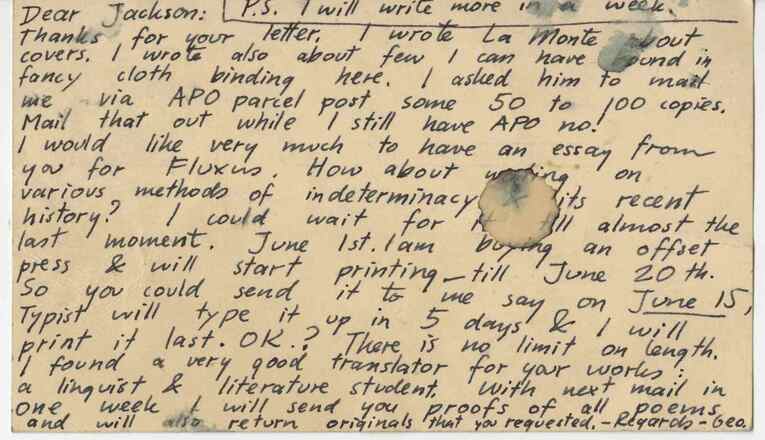 Dear Jackson: P.S. I will write more in a week.
Thanks for your letter. I wrote La Monte about
covers. I wrote also about few I can have bound in
fancy cloth binding here. I asked him to mail
me via APO parcel post some 50 to 100 copies.
Mail that out while I still have APO no!
I would like very much to have an essay from
you for Fluxus. How about on
various methods of indeterminacy its recent
history? I could wait for it till almost the
last moment. June 1st. I am buying an offset
press & will start printing – till June 20th.
So you could send it to me say on June 15,
Typist will type it up in 5 days & I will
print it last. OK.? There is no limit on length.
I found a very good translator for your works:
a linguist & literature student. With next mail in
one week I will send you proofs of all poems
and will also return originals that you requested. – Regards – Geo.